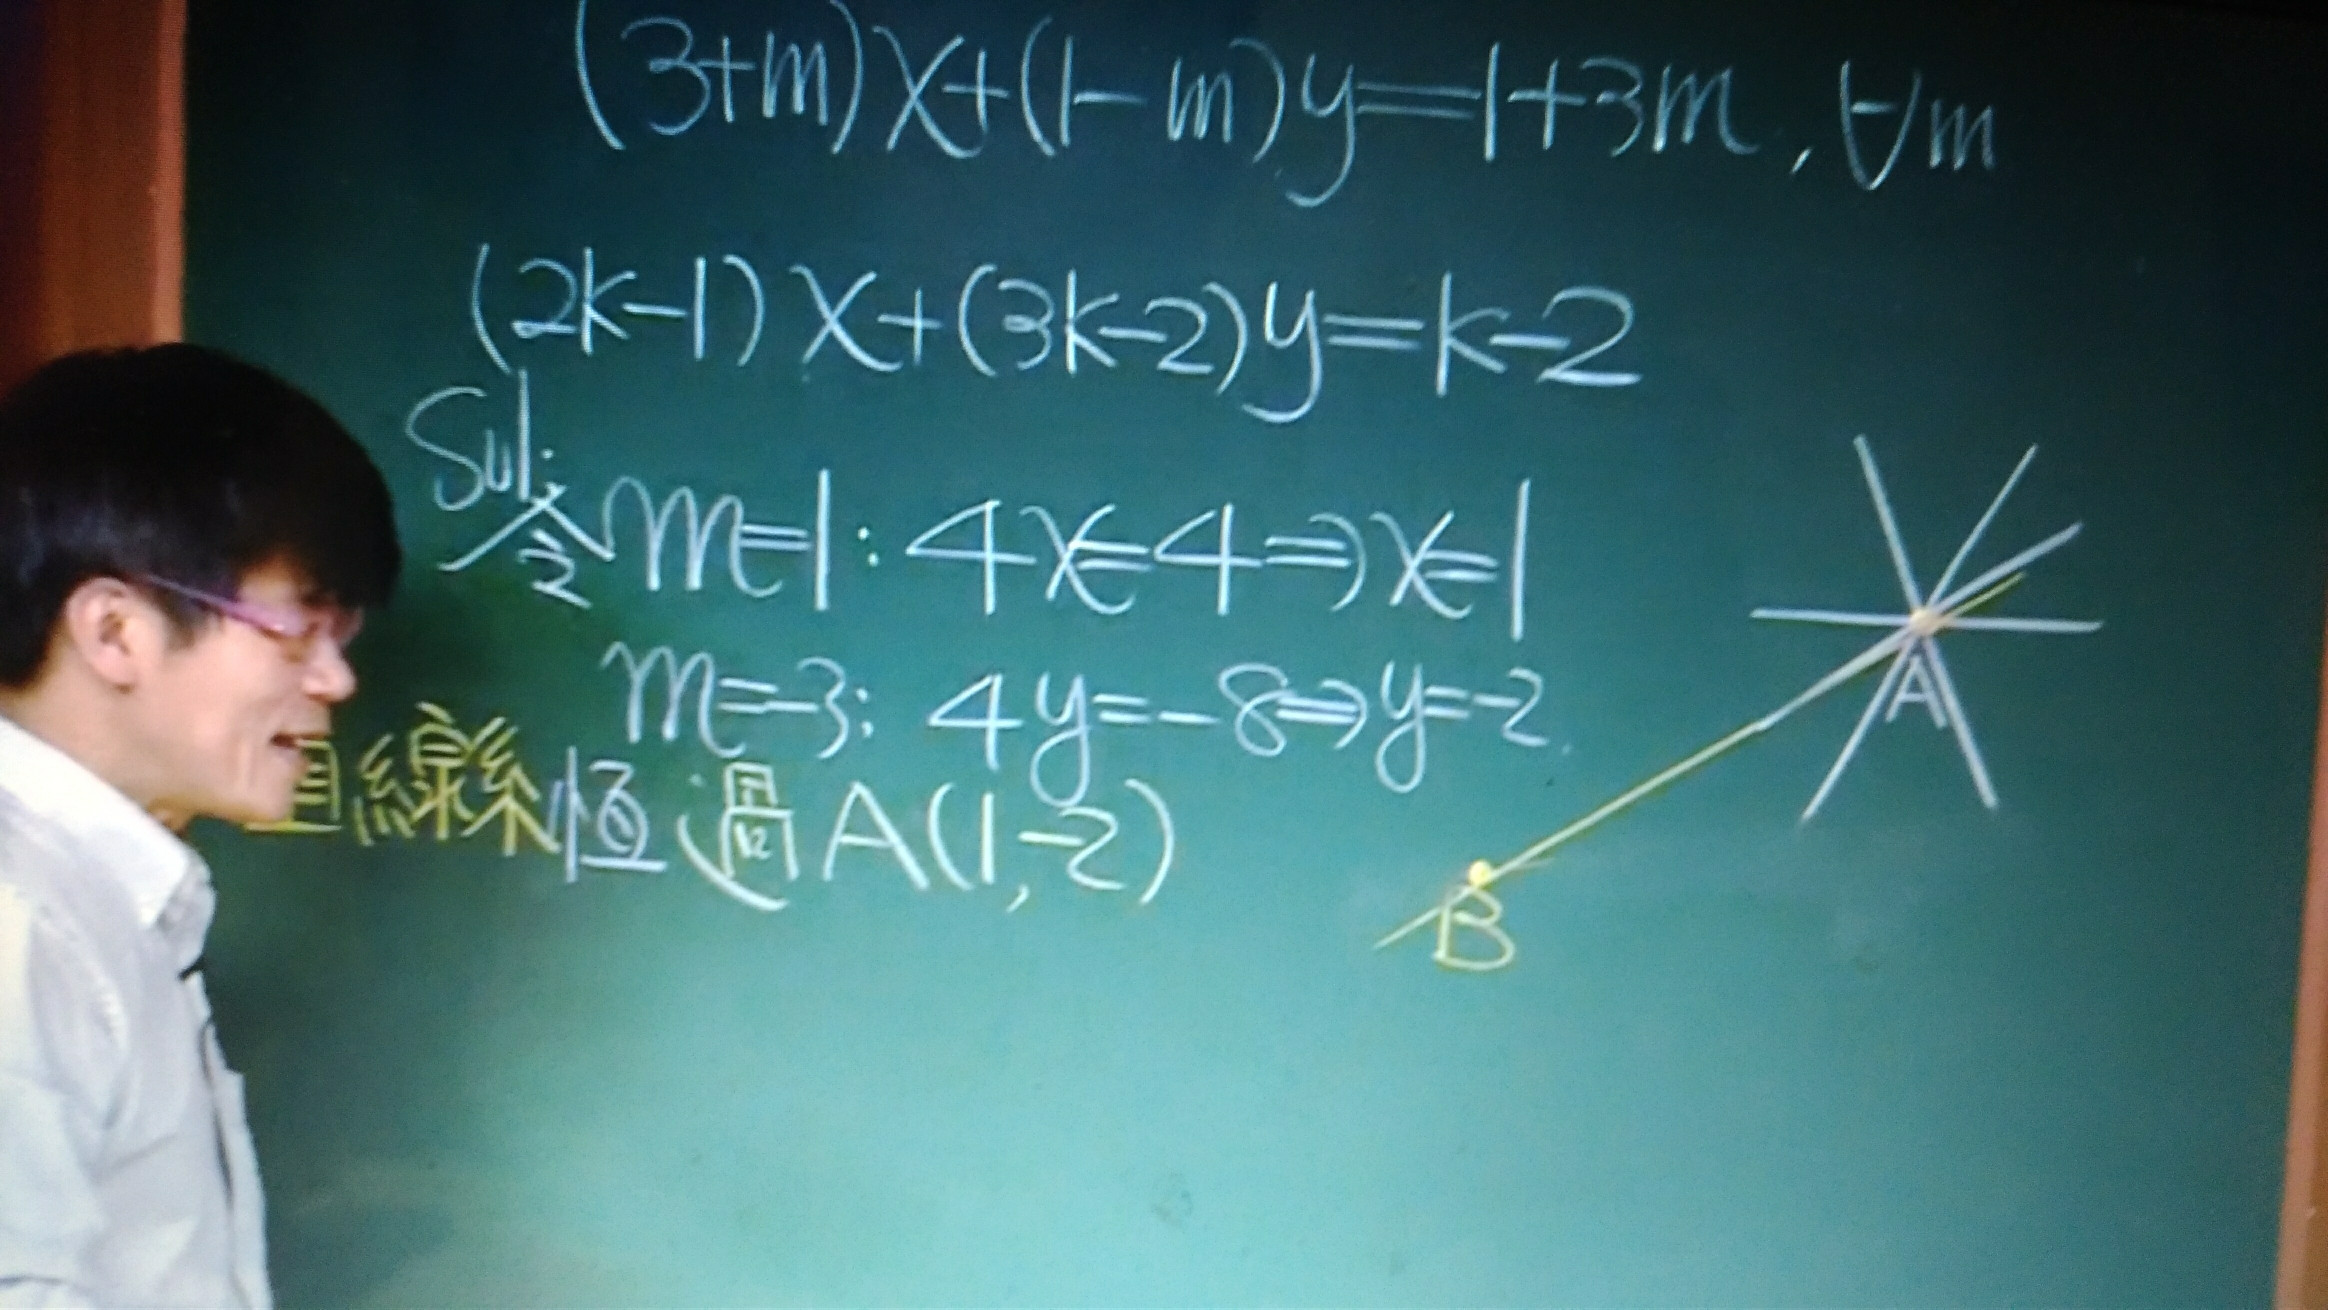 (3+m)x+(1-m)y=1+3m, ∀m
(2k-1)x+(3k-2)y=k-2
Sol:
令m=1: 4x=4⇒x=1
m=-3: 4y=-8⇒y=-2.
直線系恆過A(1,-2)
A
B